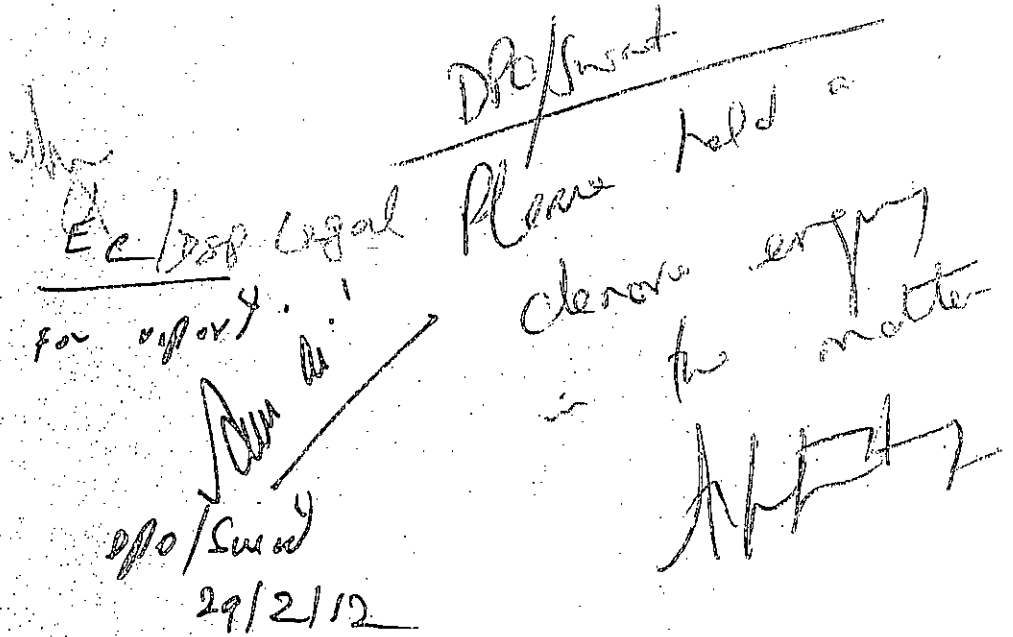 DPO/Swat
Please hold a
denove enquiry
in the matter
EC/DSP Legal
for report.
DPO/Swat
29/2/12